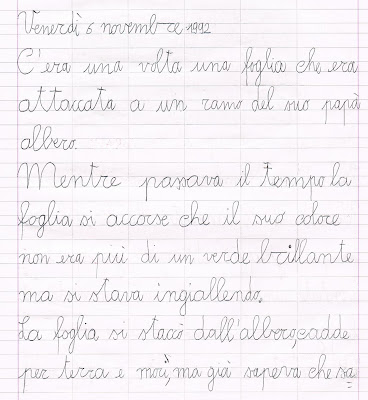 Venerdì 6 novembre 1992
C'era una volta una foglia che era
attaccata a un ramo del suo papà
albero.
Mentre passava il tempo la
foglia si accorse che il suo colore
non era più di un verde brillante
ma si stava ingiallendo.
La foglia si staccò dall'albero, cadde
per terra e morì, ma già sapeva che sa=